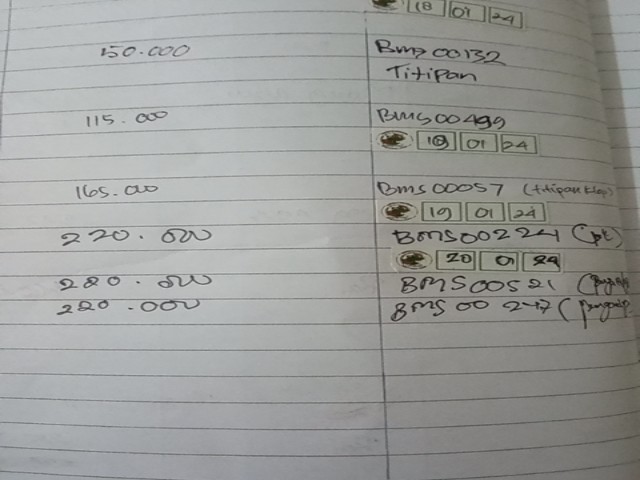 18 01 24
150.000 BMS 00132
Titipan
115.000 BMS 00499
19 01 24
165.000 BMS 00057 (titipan klep)
19 01 24
220.000 BMS 00224 (pt
20 01 24
220.000 BMS 00521
220.000 BMS 00247